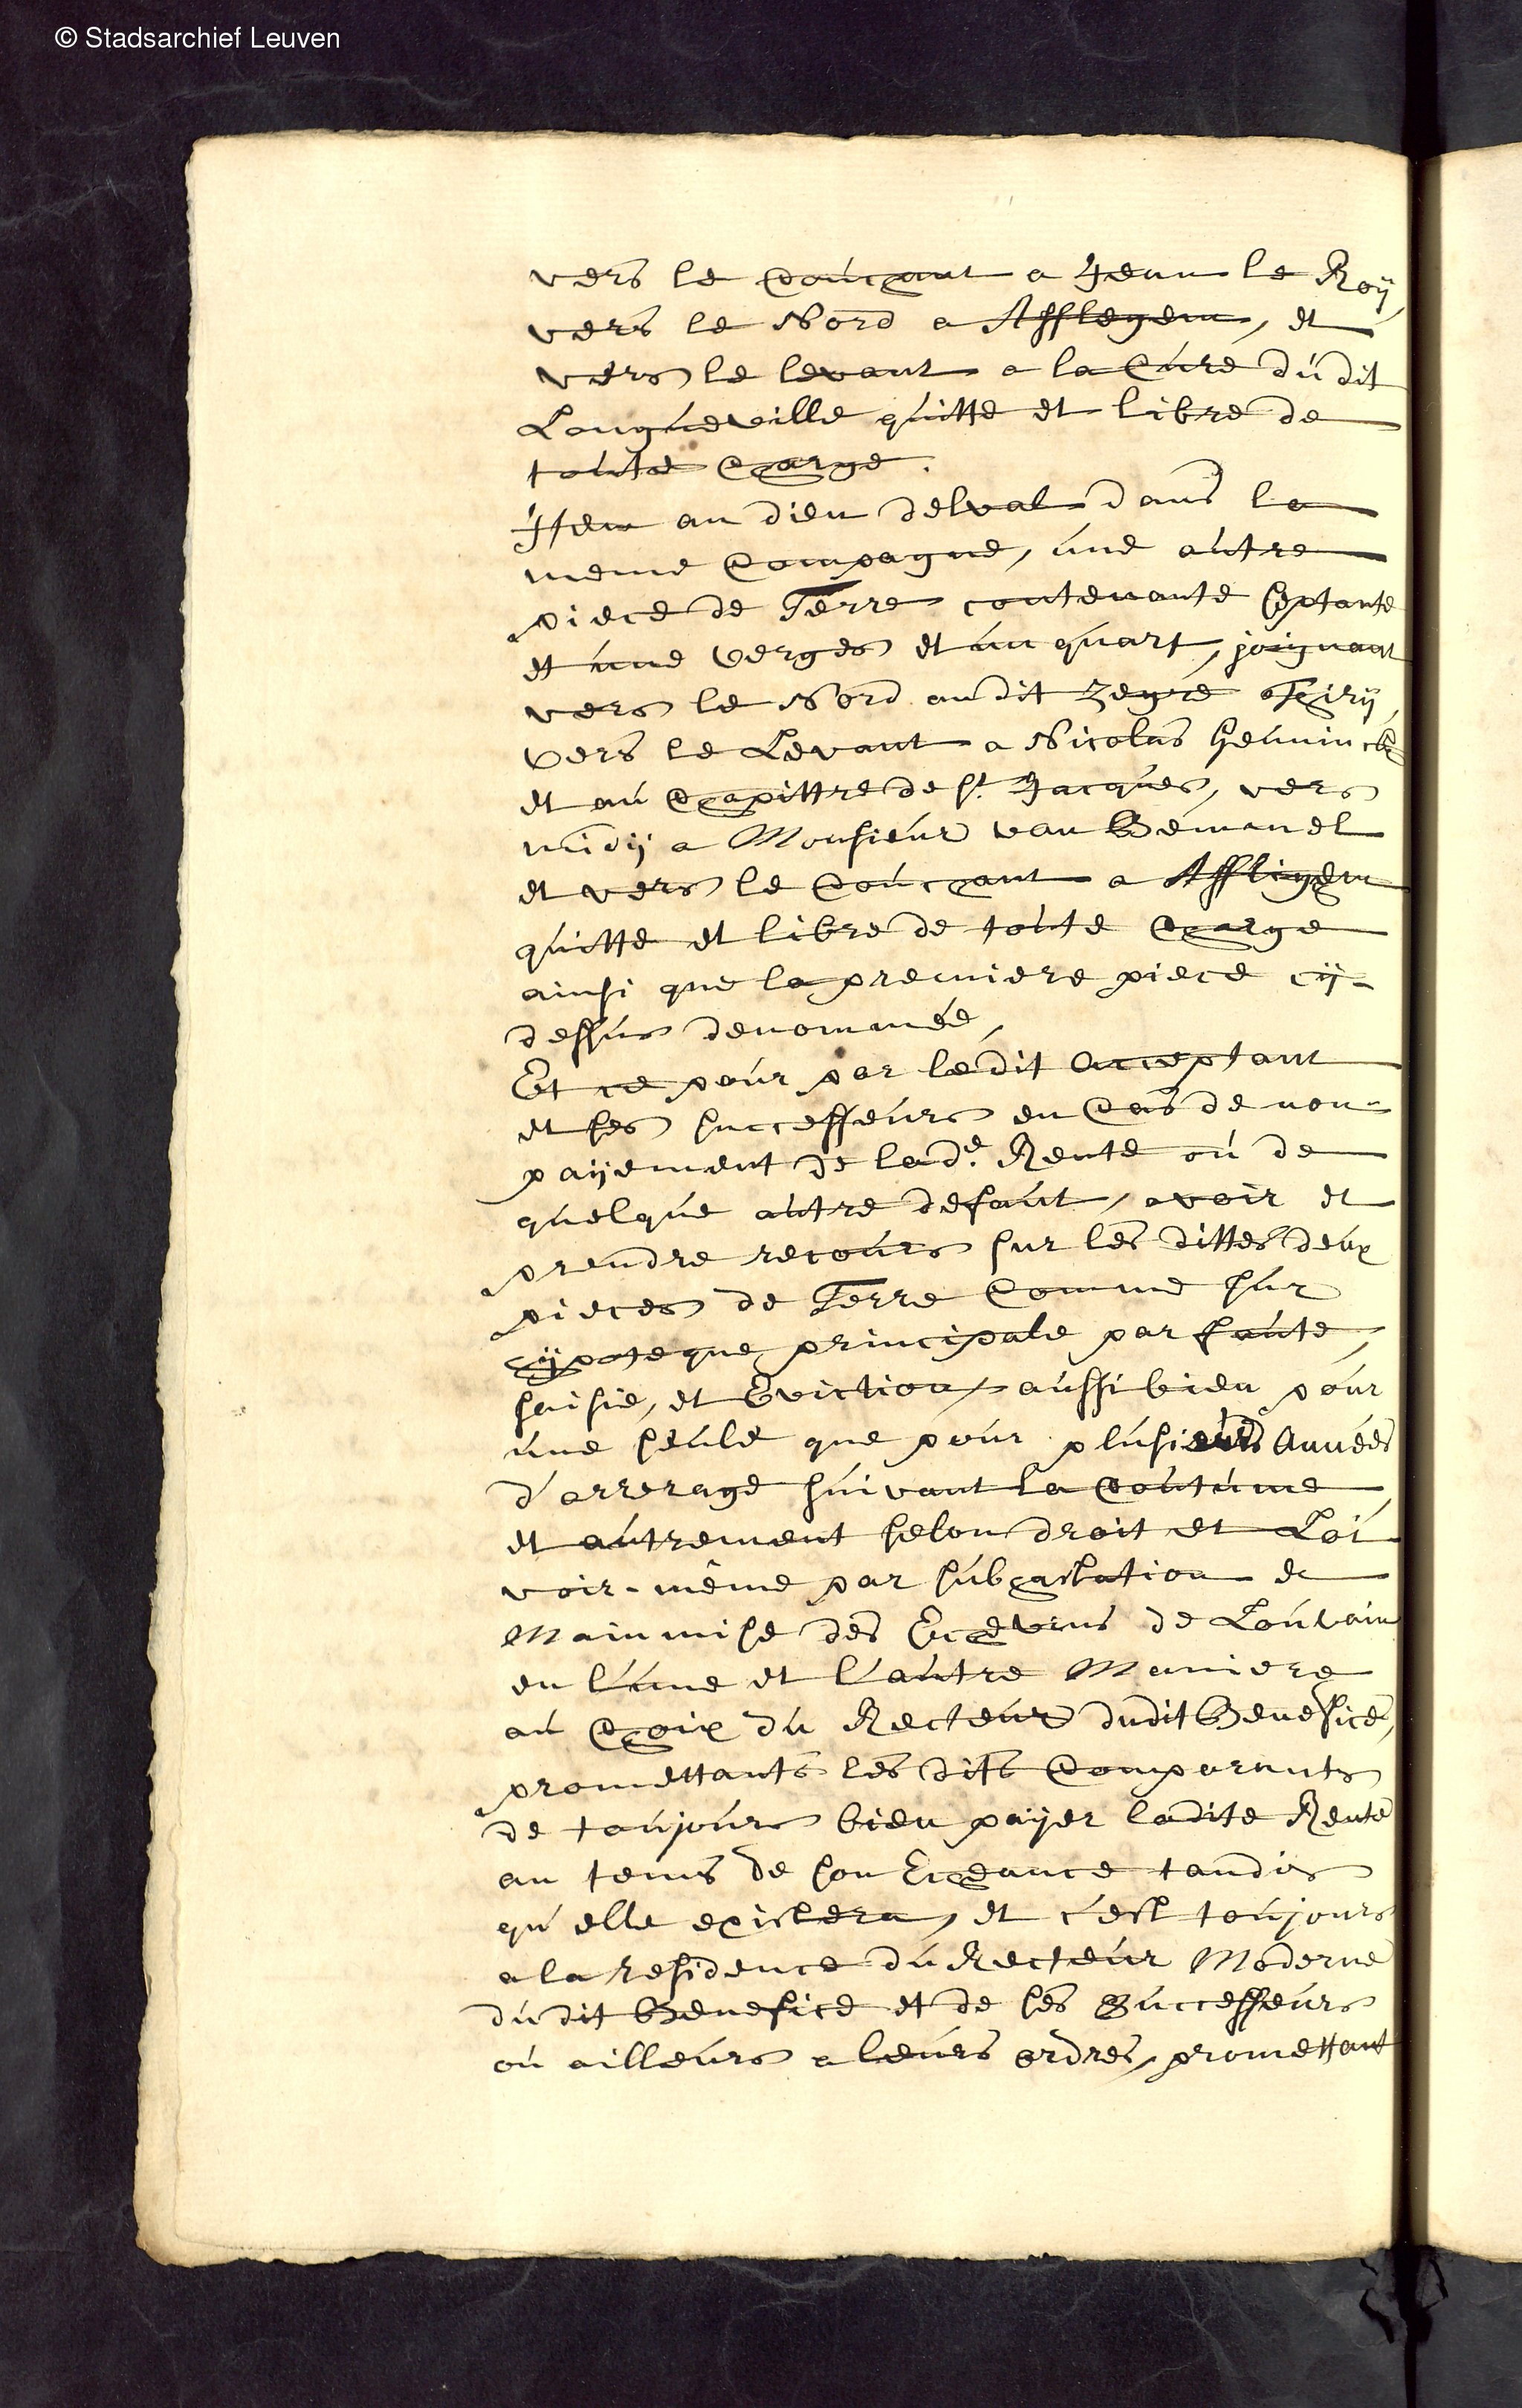 © Stadsarchief Leuven
vers le Couchant a Jean le Roÿ,
vers le Nord a Afflegem, et
vers le levant a la Cure dudit
Longueville quitte et libre de
toute charge.
Item au dieu delval dans la
meme Campagne, une autre
piece de Terre contenante septante
et une verges et un quart, joignant
vers le Nord audit Thirÿ,
vers le Levant a Nicolas Heuninckx
et au Chapittre de St. Jacques, vers
midÿ a Monsieur van Bemmel
et vers le Couchant a Affligem
quitte et libre de toute charge
ainsi que la premiere piece cÿ-
dessus denommée,
Et ce pour par ledit Acceptant
et ses successeurs en Cas de non-
paÿement de lade. Rente ou de
quelque autre defaut, avoir et
prendre recours sur les dittes deux
pieces de Terre Comme sur
hÿpoteque principale par faute,
saisie, et Eviction, aussi bien pour
une seule que pour plusieurs Années
d'arrerage suivant la Coutume,
et autrement selon droit et Loi
voir-même par subhastation et
Mainmise des Echevins de Louvain
en l'une et l'autre Maniere
au Choix du Recteur dudit Benefice,
promettants les dits Comparants
de toujours bien paÿer ladite Rente
au tems de son Echeance tandis
qu'elle existera, et c'est toujours
a la Residence du Recteur Moderne
dudit Benefice et de ses Successeurs
ou ailleurs a leurs ordres, promettant